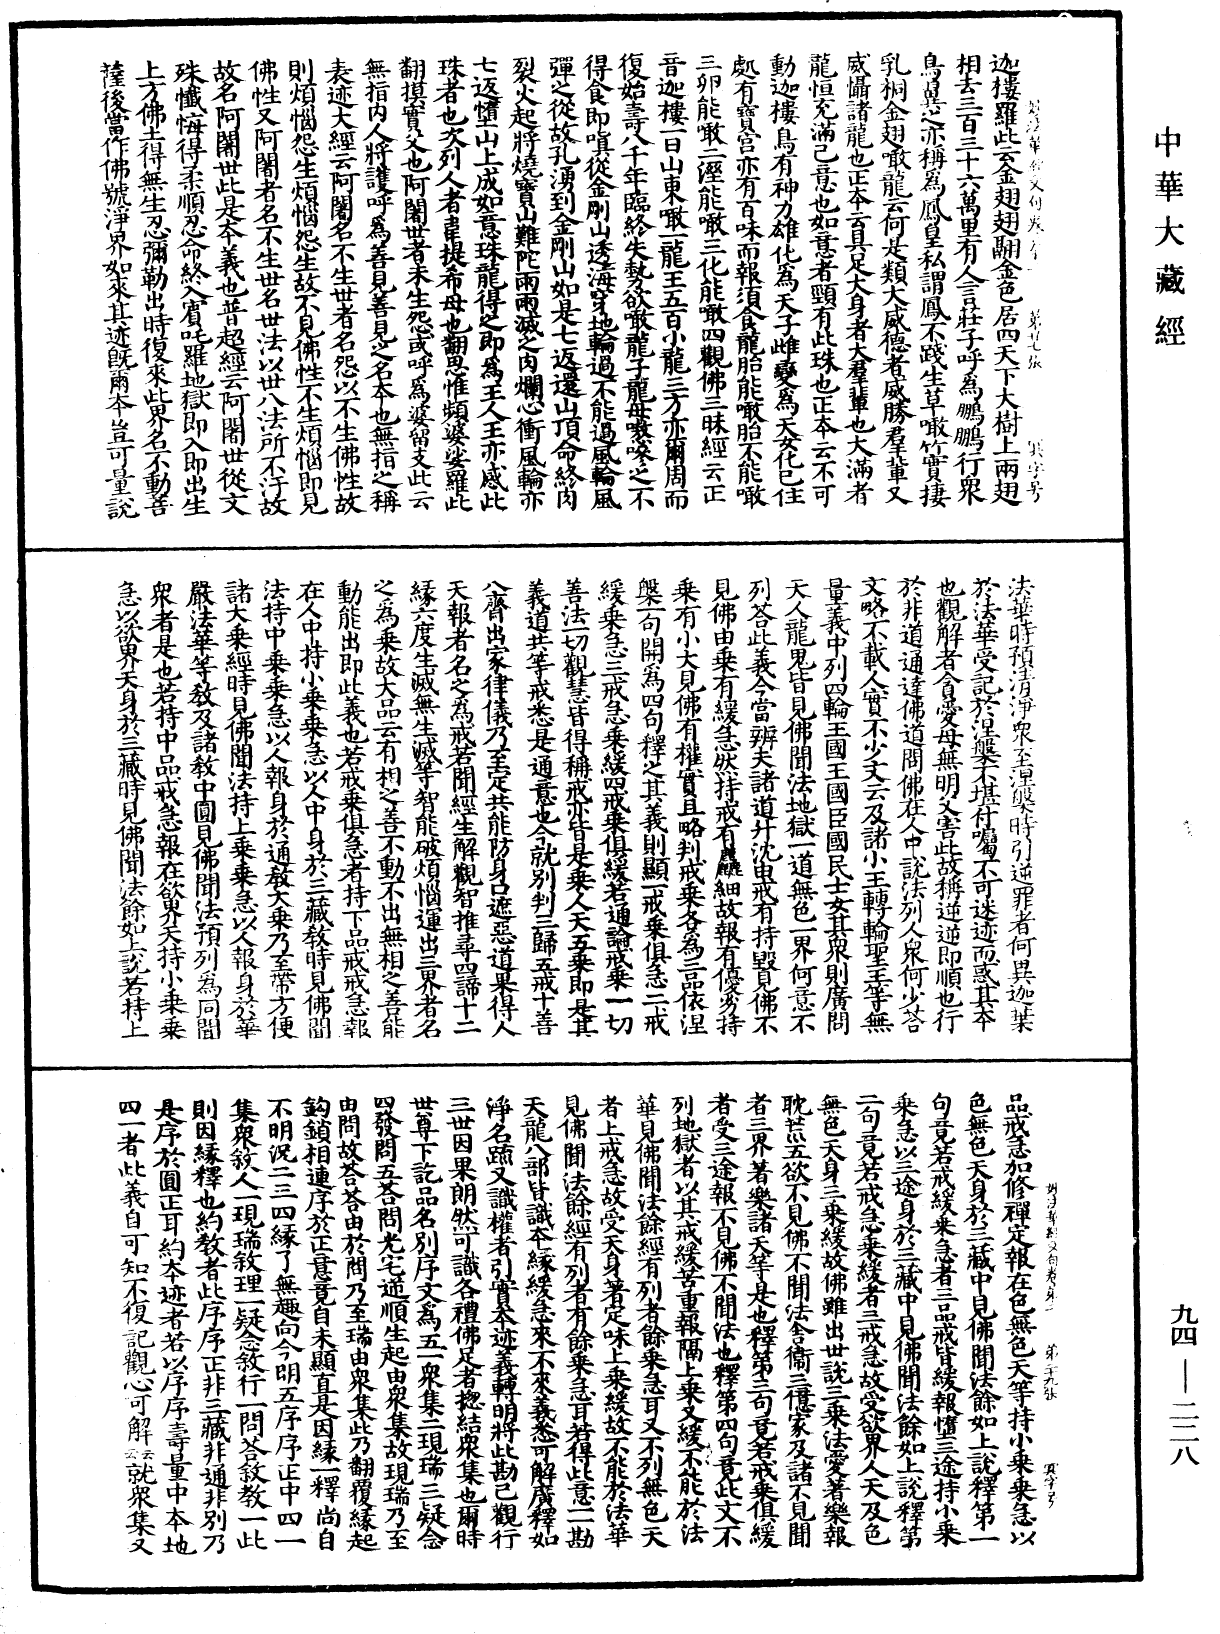 中華大藏經
迦樓羅此云金翅翅翮金色居四天下大樹上兩翅
相去三百三十六萬里有人言莊子呼爲鵬鵬行衆
鳥翼之亦稱爲鳳皇私謂鳳不踐生草噉竹實捿
乳桐金翅噉龍云何是類大威德者威勝羣輩又
威懾諸龍也正本云具足大身者大羣輩也大滿者
龍恒充滿己意也如意者頸有此珠也正本云不可
動迦樓鳥有神力雄化爲天子雌變爲天女化已住
處有寶宮亦有百味而報須食龍胎能噉胎不能噉
三卵能噉二溼能噉三化能噉四觀佛三昧經云正
音迦樓一日山東噉一龍王五百小龍三方亦爾周而
復始壽八千年臨終失勢欲噉龍子龍母嚶嚶之不
得食即嗔從金剛山透海穿地輪過不能過風輪風
彈之從故孔湧到金剛山如是七返還山頂命終肉
裂火起將燒寶山難陀雨雨滅之肉爛心衝風輪亦
七返墮山上成如意珠龍得之即爲王人王亦感此
珠者也次列人者韋提希母也翻思惟頻婆娑羅此
翻摸實父也阿闍世者未生怨或呼爲婆留支此云
無指內人將護呼爲善見善見之名本也無指之稱
表迹大經云阿闍名不生世者名怨以不生佛性故
則煩惱怨生煩惱怨生故不見佛性不生煩惱即見
佛性又阿闍者名不生世名世法以世八法所不汙故
故名阿闍世此是本義也普超經云阿闍世從文
殊懺悔得柔順忍命終入賓吒羅地獄即入即出生
上方佛土得無生忍彌勒出時復來此界名不動菩
薩後當作佛號淨界如來其迹旣爾本豈可量說
法華時預清淨衆至涅槃時引逆罪者何異迦葉
於法華受記於涅槃不堪付囑不可迷迹而惑其本
也觀解者貪愛母無明父害此故稱逆逆即順也行
於非道通達佛道問佛在人中說法列人衆何少荅
文略不載人實不少文云及諸小王轉輪聖王等無
量義中列四輪王國王國臣國民士女其衆則廣問
天人龍鬼皆見佛聞法地獄一道無色一界何意不
列荅此義今當辨夫諸道升沈由戒有持毀見佛不
見佛由乘有緩急然持戒有麤細故報有優劣持
乘有小大見佛有權實且略判戒乘各爲三品依涅
槃一句開爲四句釋之其義則顯一戒乘俱急二戒
緩乘急三戒急乘緩四戒乘俱緩若通論戒乘一切
善法一切觀慧皆得稱戒亦皆是乘人天五乘即是其
義道共等戒悉是通意也今就別判三歸五戒十善
八齋出家律儀乃至定共能防身口遮惡道果得人
天報者名之爲戒若聞經生解觀智推尋四諦十二
緣六度生滅無生滅等智能破煩惱運出三界者名
之爲乘故大品云有相之善不動不出無相之善能
動能出即此義也若戒乘俱急者持下品戒戒急報
在人中持小乘乘急以人中身於三藏教時見佛聞
法持中乘乘急以人報身於通教大乘乃至帶方便
諸大乘經時見佛聞法持上乘乘急以人報身於華
嚴法華等教及諸教中圓見佛聞法預列爲同聞
衆者是也若持中品戒急報在欲界天持小乘乘
急以欲界天身於三藏時見佛聞法餘如上說若持上
品戒急加修禪定報在色無色天等持小乘乘急以
色無色天身於三藏中見佛聞法餘如上說釋第一
句竟若戒緩乘急者三品戒皆緩報墮三途持小乘
乘急以三途身於三藏中見佛聞法餘如上說釋第
二句竟若戒急乘緩者三戒急故受欲界人天及色
無色天身三乘緩故佛雖出世說三乘法愛著樂報
耽荒五欲不見佛不聞法舍衛三億家及諸不見聞
者三界著樂諸天等是也釋第三句竟若戒乘俱緩
者受三途報不見佛不聞法也釋第四句竟此文不
列地獄者以其戒緩苦重報隔上乘又緩不能於法
華見佛聞法餘經有列者餘乘急耳又不列無色天
者上戒急故受天身著定味上乘緩故不能於法華
見佛聞法餘經有列者有餘乘急耳若得此意一一勘
天龍八部皆識本緣緩急來不來義悉可解廣釋如
淨名疏又識權者引實本迹義轉明將此勘己觀行
三世因果朗然可識各禮佛足者揔結衆集也爾時
世尊下訖品名別序文爲五一衆集二現瑞三疑念
四發問五荅問光宅遞順生起由衆集故現瑞乃至
由問故荅荅由於問乃至瑞由衆集此乃翻覆緣起
鉤鎖相連序於正意竟自未顯直是因緣一釋尚自
不明況二三四緣了無趣向今明五序序正中四一
集衆敘人一現瑞敘理一疑念敘行一問荅敘教一此
則因緣釋也約教者此序序正非三藏非通非別乃
是序於圓正耳約本迹者若以序序壽量中本地
四一者此義自可知不復記觀心可解云云就衆集又
九四—二二八